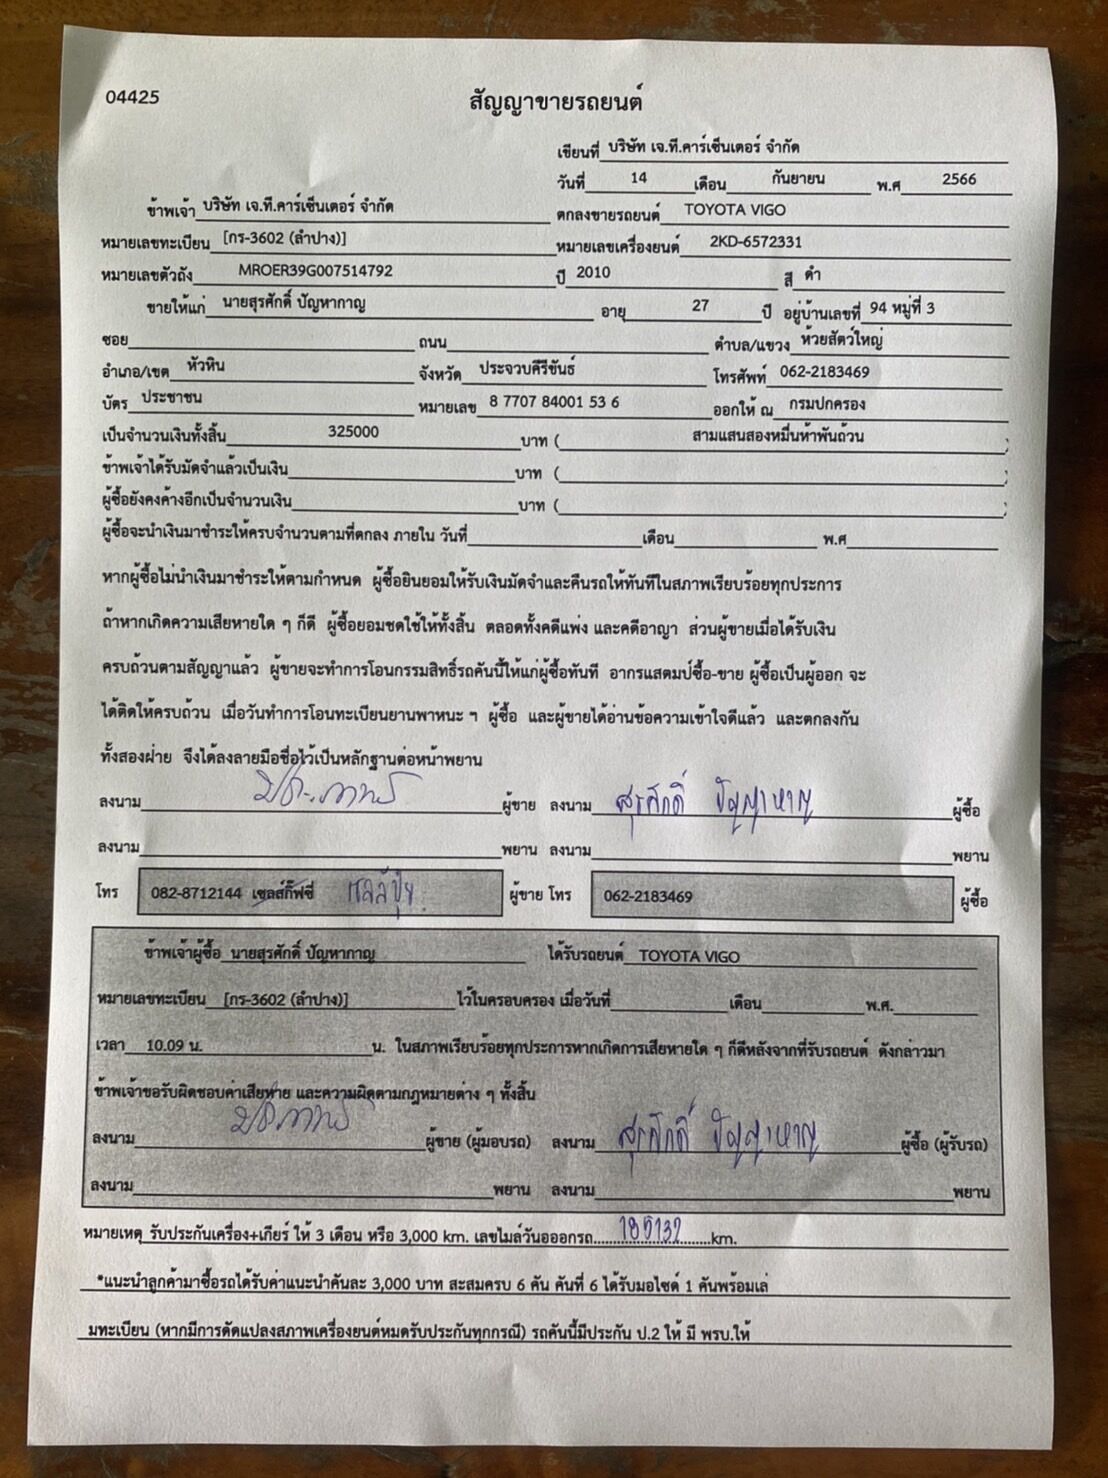 04425
สัญญาขายรถยนต์
เขียนที่ บริษัท เจ.ที.คาร์เซ็นเตอร์ จำกัด
วันที่ 14 เดือน กันยายน พ.ศ 2566
ข้าพเจ้า บริษัท เจ.ที.คาร์เซ็นเตอร์ จำกัด ตกลงขายรถยนต์ TOYOTA VIGO
หมายเลขทะเบียน [กร-3602 (ลำปาง)] หมายเลขเครื่องยนต์ 2KD-6572331
หมายเลขตัวถัง MROER39G007514792 ปี 2010 สี ดำ
ขายให้แก่ นายสุรศักดิ์ ปัญหากาญ อายุ 27 ปี อยู่บ้านเลขที่ 94 หมู่ที่ 3
ซอย ถนน ตำบล/แขวง ห้วยสัตว์ใหญ่
อำเภอ/เขต หัวหิน จังหวัด ประจวบคีรีขันธ์ โทรศัพท์ 062-2183469
บัตร ประชาชน หมายเลข 8 7707 84001 53 6 ออกให้ ณ กรมปกครอง
เป็นจำนวนเงินทั้งสิ้น 325000 บาท ( สามแสนสองหมื่นห้าพันถ้วน )
ข้าพเจ้าได้รับมัดจำแล้วเป็นเงิน บาท ( )
ผู้ซื้อยังคงค้างอีกเป็นจำนวนเงิน บาท ( )
ผู้ซื้อจะนำเงินมาชำระให้ครบจำนวนตามที่ตกลง ภายใน วันที่ เดือน พ.ศ
หากผู้ซื้อไม่นำเงินมาชำระให้ตามกำหนด ผู้ซื้อยินยอมให้รับเงินมัดจำและคืนรถให้ทันทีในสภาพเรียบร้อยทุกประการ
ถ้าหากเกิดความเสียหายใด ๆ ก็ดี ผู้ซื้อยอมชดใช้ให้ทั้งสิ้น ตลอดทั้งคดีแพ่ง และคดีอาญา ส่วนผู้ขายเมื่อได้รับเงิน
ครบถ้วนตามสัญญาแล้ว ผู้ขายจะทำการโอนกรรมสิทธิ์รถคันนี้ให้แก่ผู้ซื้อทันที อากรแสตมป์ซื้อ-ขาย ผู้ซื้อเป็นผู้ออก จะ
ได้ติดให้ครบถ้วน เมื่อวันทำการโอนทะเบียนยานพาหนะ ฯ ผู้ซื้อ และผู้ขายได้อ่านข้อความเข้าใจดีแล้ว และตกลงกัน
ทั้งสองฝ่าย จึงได้ลงลายมือชื่อไว้เป็นหลักฐานต่อหน้าพยาน
ลงนาม ผู้ขาย ลงนาม สุรศักดิ์ ปัญญาหาญ ผู้ซื้อ
ลงนาม พยาน ลงนาม พยาน
โทร 082-8712144 เซลส์กิ๊ฟซี่ เซลล์ปุ้ย ผู้ขาย โทร 062-2183469 ผู้ซื้อ
ข้าพเจ้าผู้ซื้อ นายสุรศักดิ์ ปัญหากาญ ได้รับรถยนต์ TOYOTA VIGO
หมายเลขทะเบียน [กร-3602 (ลำปาง)] ไว้ในครอบครอง เมื่อวันที่ เดือน พ.ศ.
เวลา 10.09 น. น. ในสภาพเรียบร้อยทุกประการหากเกิดการเสียหายใด ๆ ก็ดีหลังจากที่รับรถยนต์ ดังกล่าวมา
ข้าพเจ้าขอรับผิดชอบค่าเสียหาย และความผิดตามกฎหมายต่าง ๆ ทั้งสิ้น
ลงนาม ผู้ขาย (ผู้มอบรถ) ลงนาม สุรศักดิ์ ปัญญาหาญ ผู้ซื้อ (ผู้รับรถ)
ลงนาม พยาน ลงนาม พยาน
หมายเหตุ รับประกันเครื่อง+เกียร์ ให้ 3 เดือน หรือ 3,000 km. เลขไมล์วันอออกรถ......185132......km.
*แนะนำลูกค้ามาซื้อรถได้รับค่าแนะนำคันละ 3,000 บาท สะสมครบ 6 คัน คันที่ 6 ได้รับมอไซด์ 1 คันพร้อมเล่
มทะเบียน (หากมีการดัดแปลงสภาพเครื่องยนต์หมดรับประกันทุกกรณี) รถคันนี้มีประกัน ป.2 ให้ มี พรบ.ให้